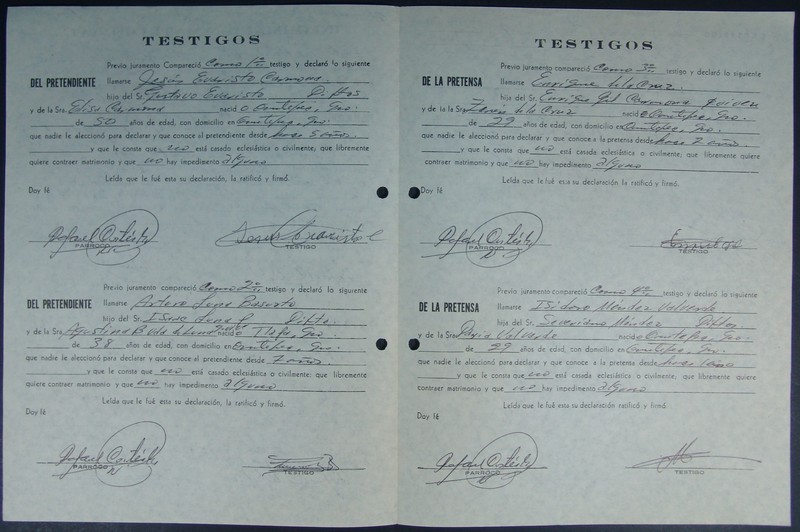 TESTIGOS
Previo juramento Compareció Como 1er testigo y declaró lo siguiente
DEL PRETENDIENTE llamarse Jesús Evaristo Carmona
hijo del Sr. Gustavo Evaristo
y de la Sra. Elisa Carmona nació
de 50 años de edad, con domicilio en
que nadie le aleccionó para declarar y que conoce al pretendiente desde hace 5 años
y que le consta que no está casado eclesiástica o civilmente; que libremente
quiere contraer matrimonio y que no hay impedimento alguno
Leída que le fué esta su declaración, la ratificó y firmó.
Doy fé
Rafael Cortés
PARROCO
TESTIGO
Previo juramento compareció Como 2o testigo y declaró lo siguiente
DEL PRETENDIENTE llamarse Arturo Luna Basurto
hijo del Sr. Isaac Luna
y de la Sra. Agustina nació
de 38 años de edad, con domicilio en
que nadie le aleccionó para declarar y que conoce al pretendiente desde 7 años
y que le consta que no está casado eclesiástica o civilmente; que libremente
quiere contraer matrimonio y que no hay impedimento alguno
Leída que le fué esta su declaración, la ratificó y firmó.
Doy fé
Rafael Cortés
PARROCO
TESTIGO
TESTIGOS
Previo juramento compareció Como 3er testigo y declaró lo siguiente
DE LA PRETENSA llamarse Enrique de la Cruz
hija del Sr. Enrique Gil
y de la Sra. de la Cruz nació
de 29 años de edad, con domicilio en
que nadie le aleccionó para declarar y que conoce a la pretensa desde hace 2 años
y que le consta que no está casada eclesiástica o civilmente; que libremente quiere
contraer matrimonio y que no hay impedimento alguno
Leída que le fué esta su declaración, la ratificó y firmó.
Doy fé
Rafael Cortés
PARROCO
TESTIGO
Previo juramento compareció Como 4o testigo y declaró lo siguiente
DE LA PRETENSA llamarse Isidoro Méndez Valverde
hijo del Sr. Severino Méndez
y de la Sra. Valverde nació
de 29 años de edad, con domicilio en
que nadie le aleccionó para declarar y que conoce a la pretensa desde hace
y que le consta que no está casada eclesiástica o civilmente; que libremente quiere
contraer matrimonio y que no hay impedimento alguno
Leída que le fué esta su declaración, la ratificó y firmó.
Doy fé
Rafael Cortés
PARROCO
TESTIGO